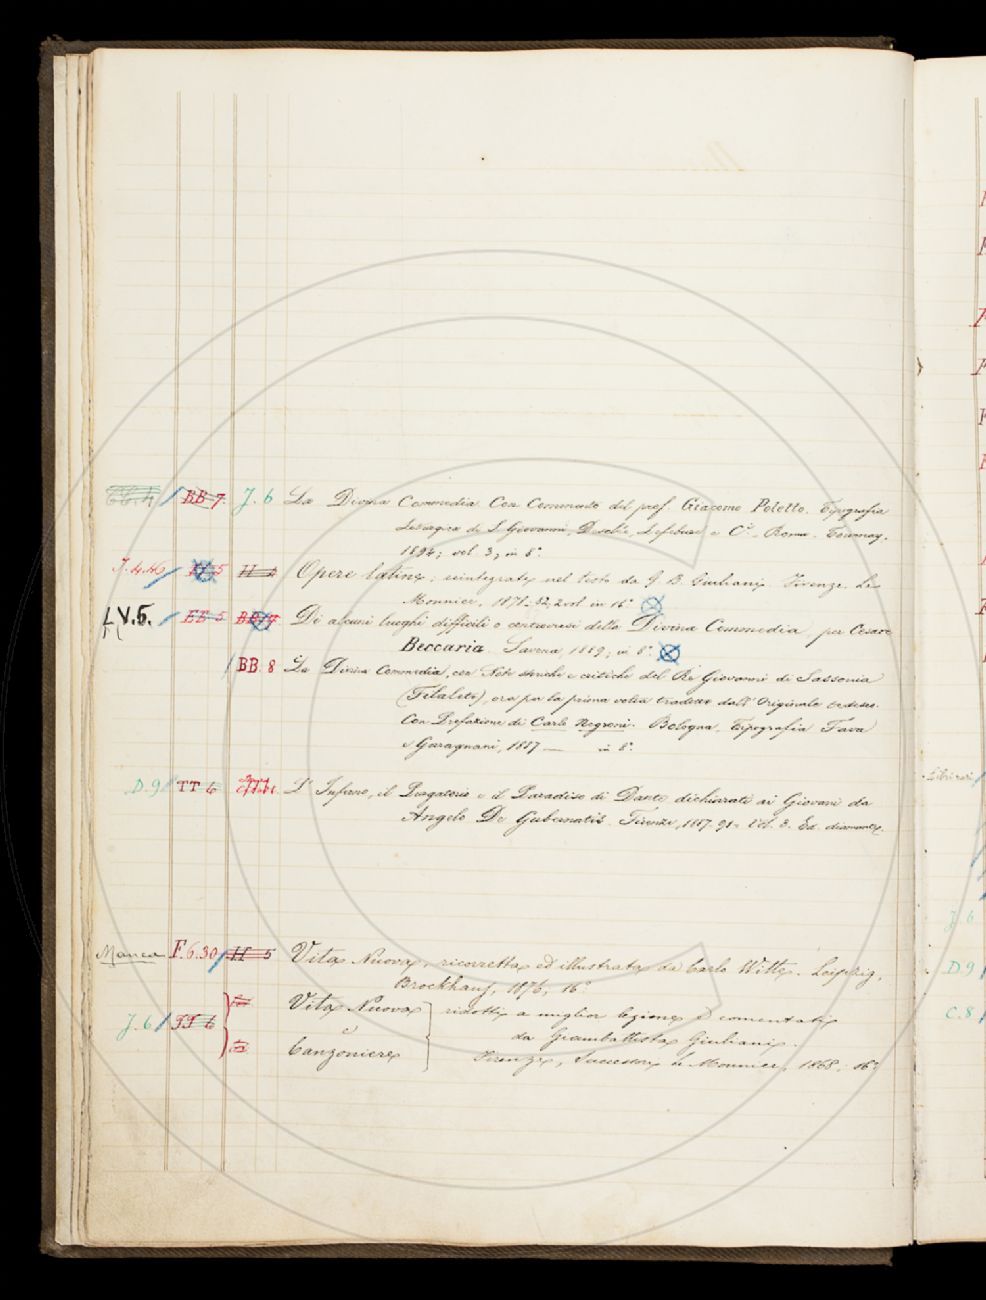 BB. 7. J. 6 La Divina Commedia Con Commento del prof. Giacomo Poletto. Tipografia
Liturgica di S. Giovanni, Desclée, Lefebvre e Cⁱ. Roma - Tournay.
1894; vol. 3; in 8°.
J.4.46 H 5 H 2 Opere latine; reintegrate nel testo da G. B. Giuliani. Firenze. Le
Monnier, 1878-82, 2 vol. in 16°
LV.5. EE 5 Di alcuni luoghi difficili o controversi della Divina Commedia, per Cesare
Beccaria. Savona, 1889; in 8°.
BB. 8 La Divina Commedia, con Note storiche e critiche del Re Giovanni di Sassonia
(Filalete), ora per la prima volta tradotte dall'Originale tedesco.
Con Prefazione di Carlo Negroni. Bologna, Tipografia Fava
e Garagnani, 1887 — in 8°.
D.9 TT 6 L'Inferno, il Purgatorio e il Paradiso di Dante dichiarati ai Giovani da
Angelo De Gubernatis. Firenze, 1887-91. Vol. 3. Ed. diamante.
Manca F.6.30 H 5 Vita Nuova, ricorretta ed illustrata da Carlo Witte. Leipzig,
Brockhaus, 1876, 16°
Vita Nuova ridotti a miglior lezione e comentati
J.6 TT 6 e da Giambattista Giuliani.
Canzoniere Firenze, Successori Le Monnier, 1868, 16°
Libri rari
J.6
D9
C.8